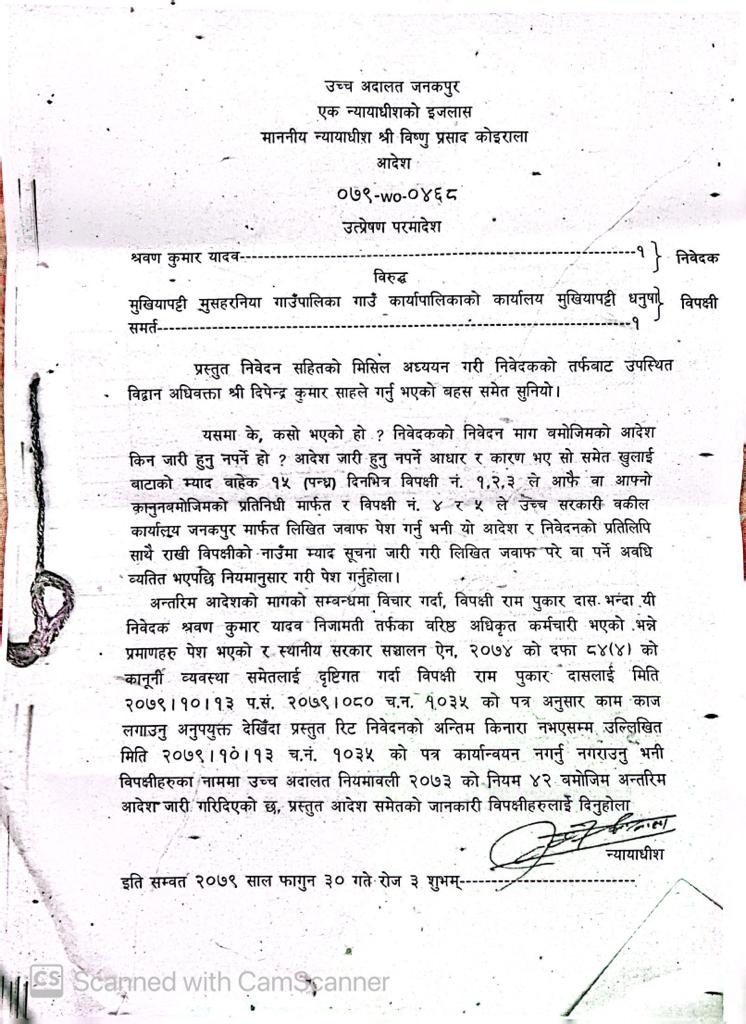 उच्च अदालत जनकपुर
एक न्यायाधीशको इजलास
माननीय न्यायाधीश श्री विष्णु प्रसाद कोइराला
आदेश
०७९-wo-०४६८
उत्प्रेषण परमादेश
श्रवण कुमार यादव------------------------------१ } निवेदक
विरुद्ध
मुखियापट्टी मुसहरनिया गाउँपालिका गाउँ कार्यापालिकाको कार्यालय मुखियापट्टी धनुषा } विपक्षी
समर्त------------------------------१
प्रस्तुत निवेदन सहितको मिसिल अध्ययन गरी निवेदकको तर्फबाट उपस्थित
विद्वान अधिवक्ता श्री दिपेन्द्र कुमार साहले गर्नु भएको बहस समेत सुनियो।
यसमा के, कसो भएको हो ? निवेदकको निवेदन माग बमोजिमको आदेश
किन जारी हुनु नपर्ने हो ? आदेश जारी हुनु नपर्ने आधार र कारण भए सो समेत खुलाई
बाटाको म्याद बाहेक १५ (पन्ध्र) दिनभित्र विपक्षी नं. १,२,३ ले आफै वा आफ्नो
कानुनबमोजिमको प्रतिनिधी मार्फत र विपक्षी नं. ४ र ५ ले उच्च सरकारी वकील
कार्यालय जनकपुर मार्फत लिखित जवाफ पेश गर्नु भनी यो आदेश र निवेदनको प्रतिलिपि
साथै राखी विपक्षीको नाउँमा म्याद सूचना जारी गरी लिखित जवाफ परे वा पर्ने अवधि
व्यतित भएपछि नियमानुसार गरी पेश गर्नुहोला।
अन्तरिम आदेशको मागको सम्बन्धमा विचार गर्दा, विपक्षी राम पुकार दास भन्दा यी
निवेदक श्रवण कुमार यादव निजामती तर्फका वरिष्ठ अधिकृत कर्मचारी भएको भन्ने
प्रमाणहरु पेश भएको र स्थानीय सरकार सञ्चालन ऐन, २०७४ को दफा ८४(४) को
कानूनी व्यवस्था समेतलाई दृष्टिगत गर्दा विपक्षी राम पुकार दासलाई मिति
२०७९।१०।१३ प.सं. २०७९।०८० च.न. १०३५ को पत्र अनुसार काम काज
लगाउनु अनुपयुक्त देखिँदा प्रस्तुत रिट निवेदनको अन्तिम किनारा नभएसम्म उल्लिखित
मिति २०७९।१०।१३ च.नं. १०३५ को पत्र कार्यान्वयन नगर्नु नगराउनु भनी
विपक्षीहरुका नाममा उच्च अदालत नियमावली २०७३ को नियम ४२ बमोजिम अन्तरिम
आदेश जारी गरिदिएको छ, प्रस्तुत आदेश समेतको जानकारी विपक्षीहरुलाई दिनुहोला
न्यायाधीश
इति सम्वत २०७९ साल फागुन ३० गते रोज ३ शुभम्------------------------------
CS Scanned with CamScanner